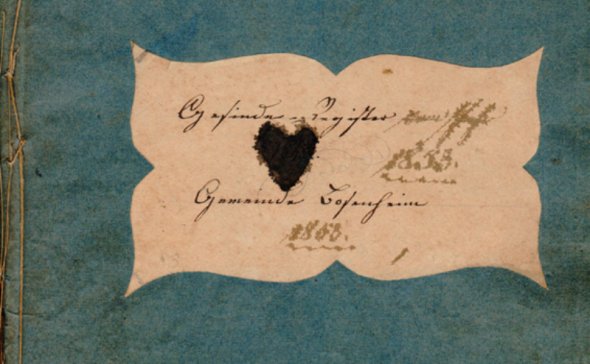 Gesinde-Register
1853.
Gemeinde Bosenheim
1853.